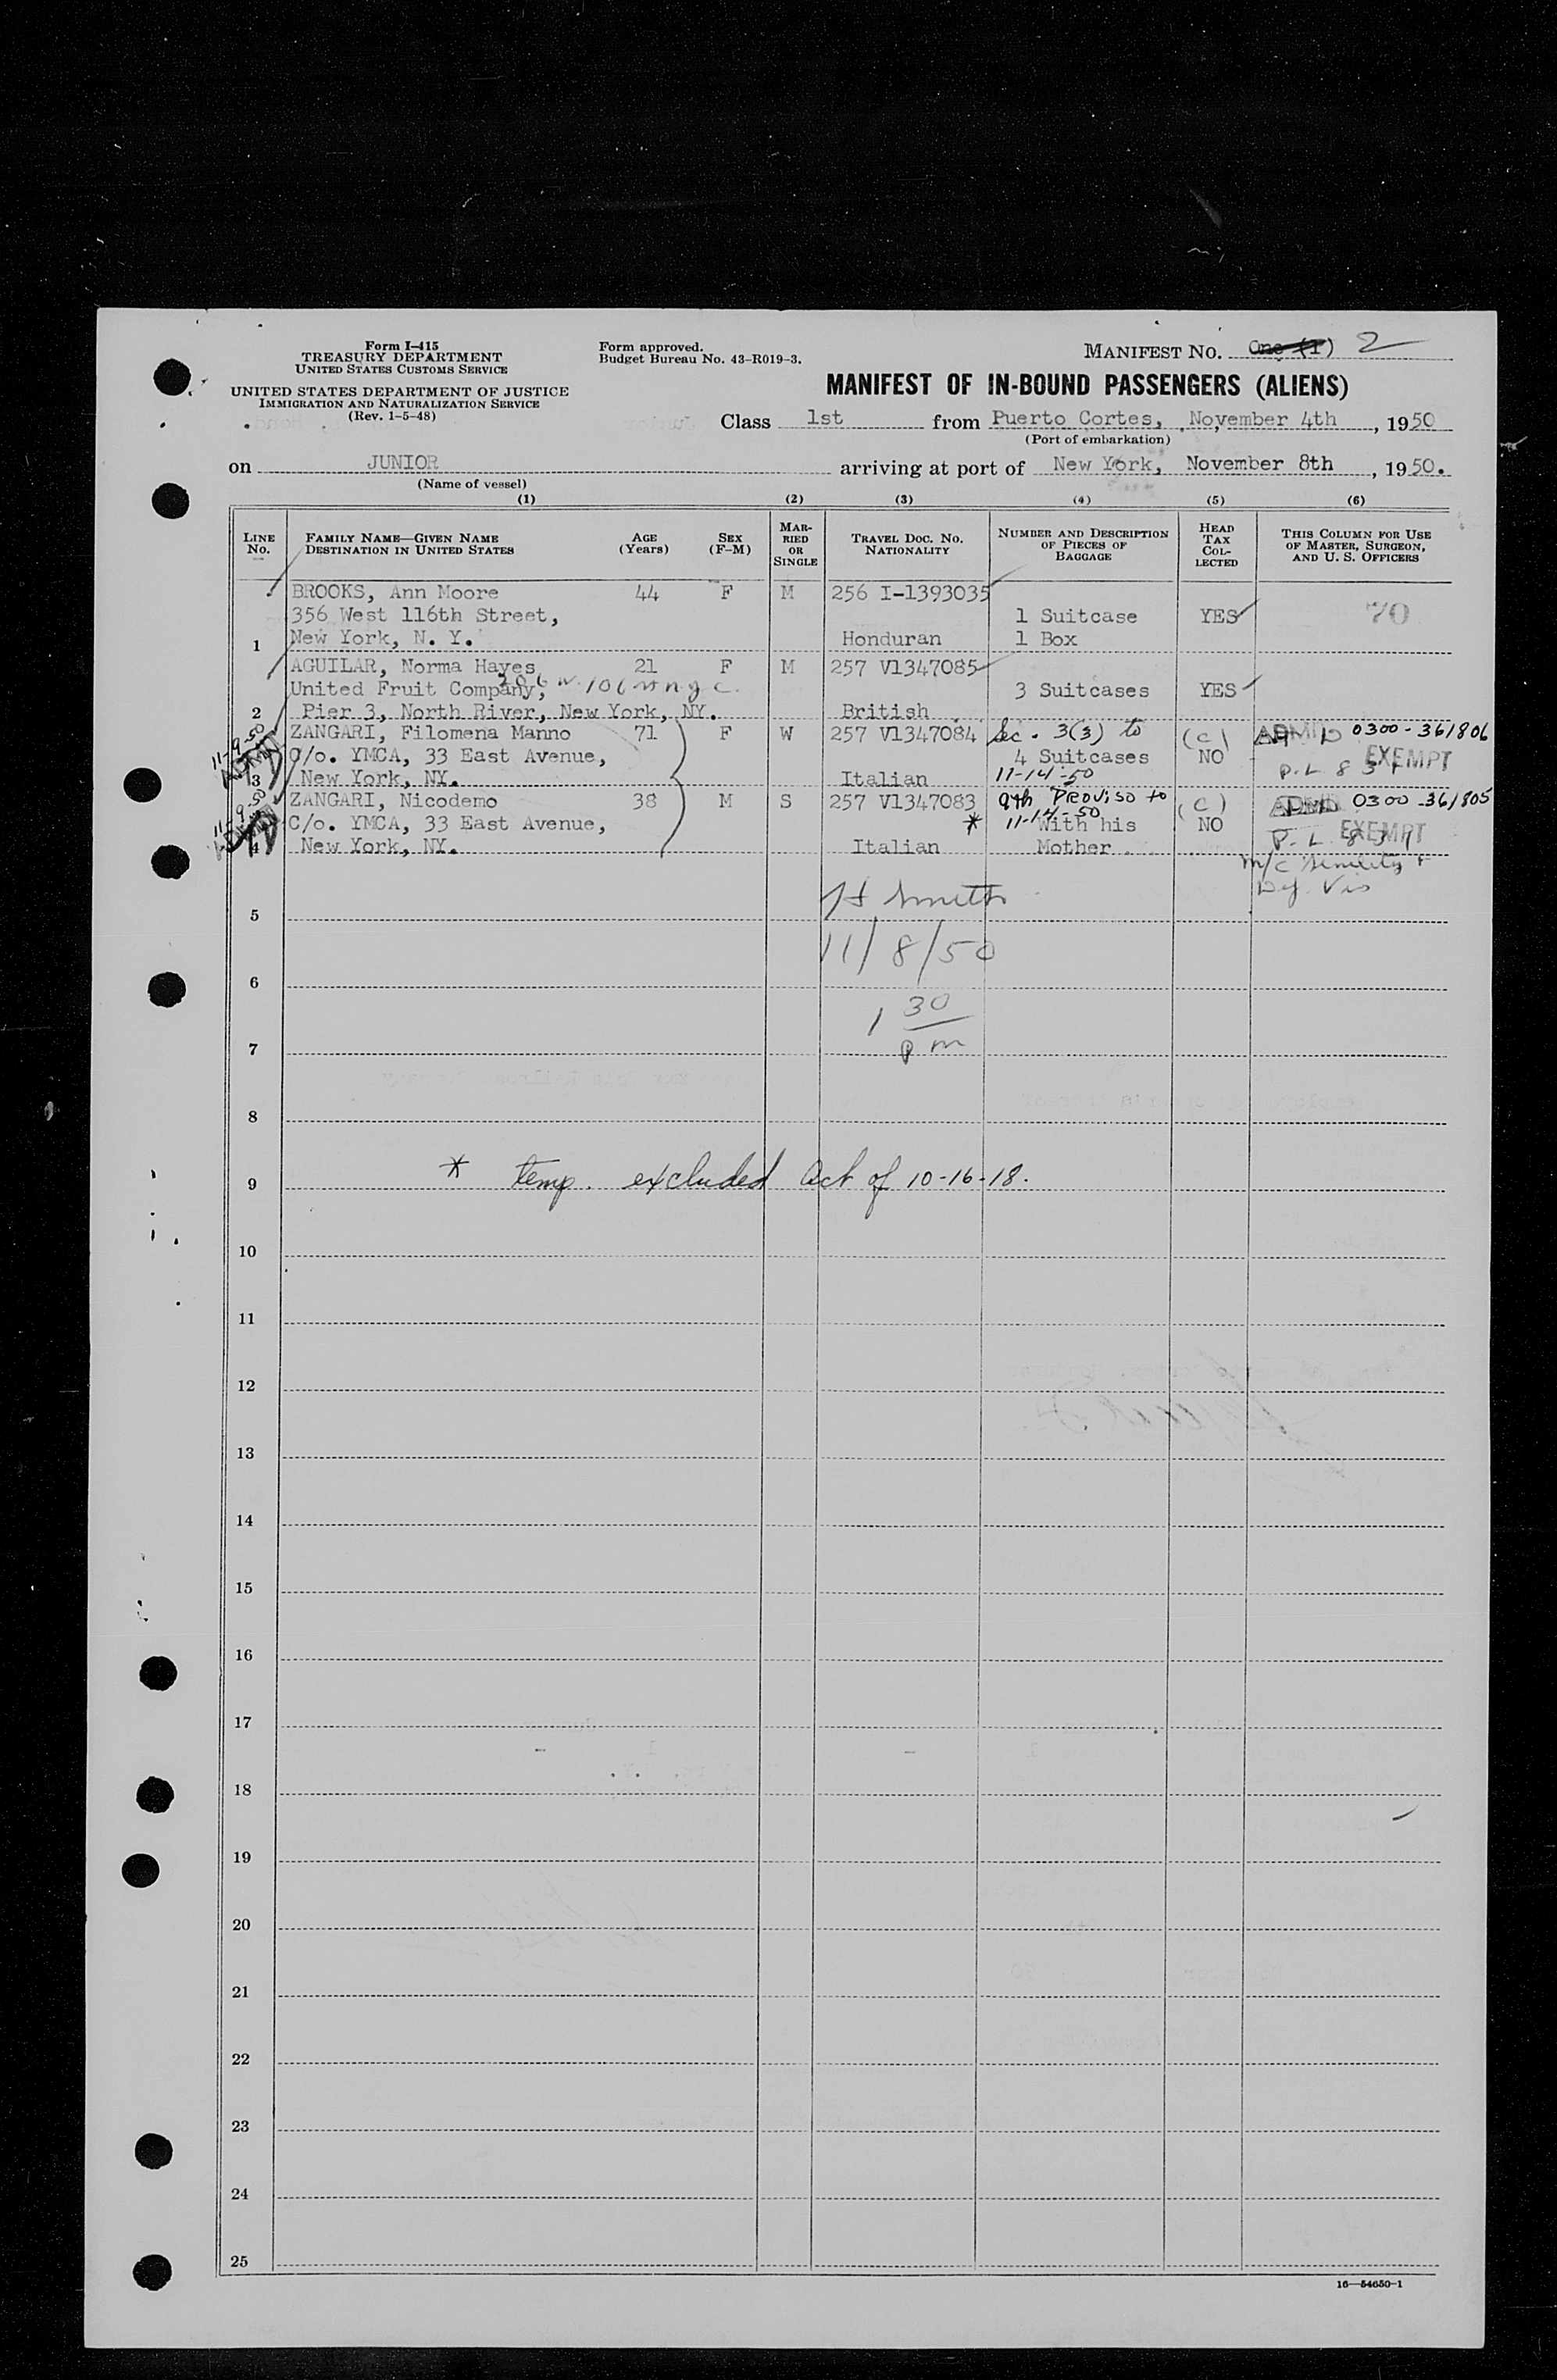 Form I-415
TREASURY DEPARTMENT
UNITED STATES CUSTOMS SERVICE
UNITED STATES DEPARTMENT OF JUSTICE
IMMIGRATION AND NATURALIZATION SERVICE
(Rev. 1-5-48)
Form approved.
Budget Bureau No. 43-R019-3.
MANIFEST No. One (1) 2
MANIFEST OF IN-BOUND PASSENGERS (ALIENS)
Class 1st from Puerto Cortes, November 4th, 1950
(Port of embarkation)
on JUNIOR arriving at port of New York, November 8th, 1950.
(Name of vessel)
(1) (2) (3) (4) (5) (6)
LINE No.
FAMILY NAME—GIVEN NAME DESTINATION IN UNITED STATES
AGE (Years)
SEX (F-M)
MARRIED OR SINGLE
TRAVEL DOC. NO. NATIONALITY
NUMBER AND DESCRIPTION OF PIECES OF BAGGAGE
HEAD TAX COLLECTED
THIS COLUMN FOR USE OF MASTER, SURGEON, AND U. S. OFFICERS
BROOKS, Ann Moore 44 F M 256 I-1393035
356 West 116th Street, 1 Suitcase YES 70
1 New York, N. Y. Honduran 1 Box
AGUILAR, Norma Hayes 21 F M 257 V1347085
United Fruit Company, 206 W. 106 st n y c. 3 Suitcases YES
2 Pier 3, North River, New York, NY. British
11-9-50 ZANGARI, Filomena Manno 71 F W 257 V1347084 Sec. 3(3) to (c) ADMD 0300-361806
C/o. YMCA, 33 East Avenue, 4 Suitcases NO EXEMPT
3 New York, NY. Italian 11-14-50 P.L. 831
11-9-50 ZANGARI, Nicodemo 38 M S 257 V1347083 9th Proviso to (c) ADMD 0300-361805
C/o. YMCA, 33 East Avenue, * 11-14-50 With his NO EXEMPT
4 New York, NY. Italian Mother P. L. 831
m/c senility +
Def. Vis
H Smith
5
11/8/50
6
1 30
pm
7
8
* temp. excluded Act of 10-16-18.
9
10
11
12
13
14
15
16
17
18
19
20
21
22
23
24
25
16—54650-1